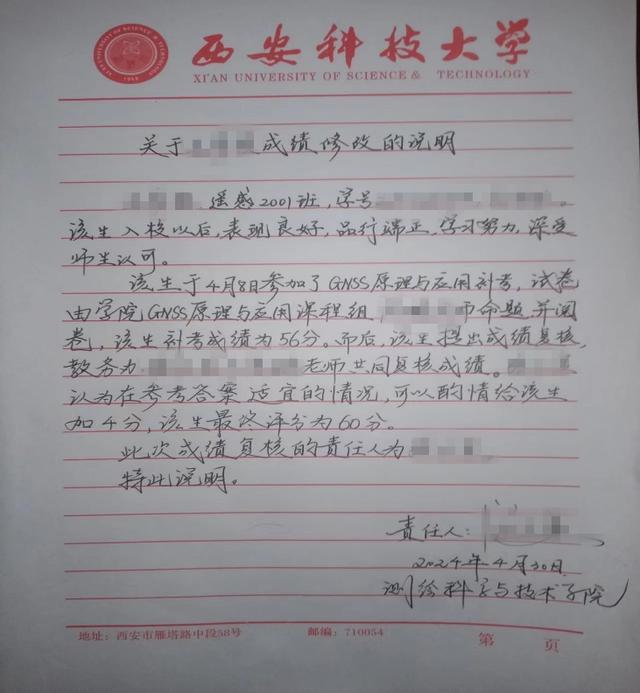 西安科技大学
XI'AN UNIVERSITY OF SCIENCE & TECHNOLOGY
关于 成绩修改的说明
遥感2001班，学号
该生入校以后，表现良好，品行端正，学习努力，深受
师生认可。
该生于4月8日参加了GNSS原理与应用补考，试卷
由学院GNSS原理与应用课程组 师命题并阅
卷，该生补考成绩为56分。而后，该生提出成绩复核，
教务为 老师共同复核成绩。
认为在参考答案适宜的情况，可以酌情给该生
加4分，该生最终评分为60分。
此次成绩复核的责任人为 。
特此说明。
责任人：
2024年4月30日
测绘科学与技术学院
地址：西安市雁塔路中段58号 邮编：710054 第 页